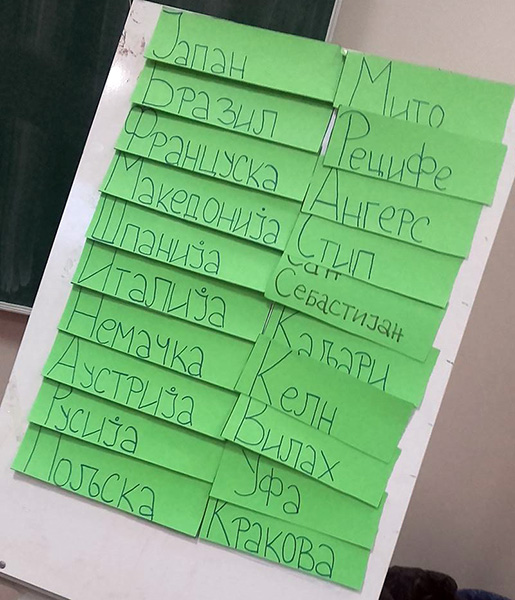 Јапан
Бразил
Француска
Македонија
Шпанија
Италија
Немачка
Аустрија
Русија
Пољска
Мито
Рецифе
Ангерс
Стип
Сан
Себастијан
Каљари
Келн
Вилах
Уфа
Кракова